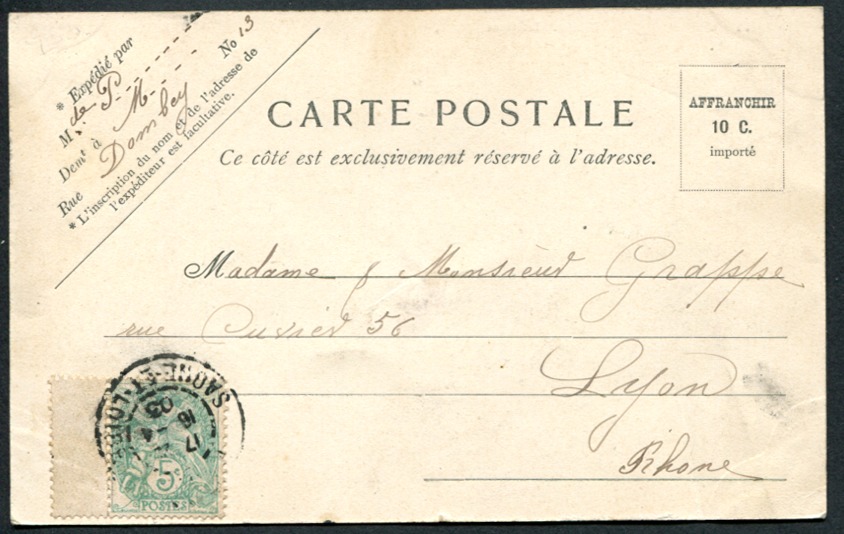 * Expédié par
M. de P.
Demt à M
N° 13
Rue Dombey
* L'inscription du nom et de l'adresse de
l'expéditeur est facultative.
CARTE POSTALE
Ce côté est exclusivement réservé à l'adresse.
AFFRANCHIR
10 C.
importé
Madame & Monsieur Grappe
rue Cuvier 56
Lyon
Rhone
SAONE-ET-LOIRE
5c
POSTES